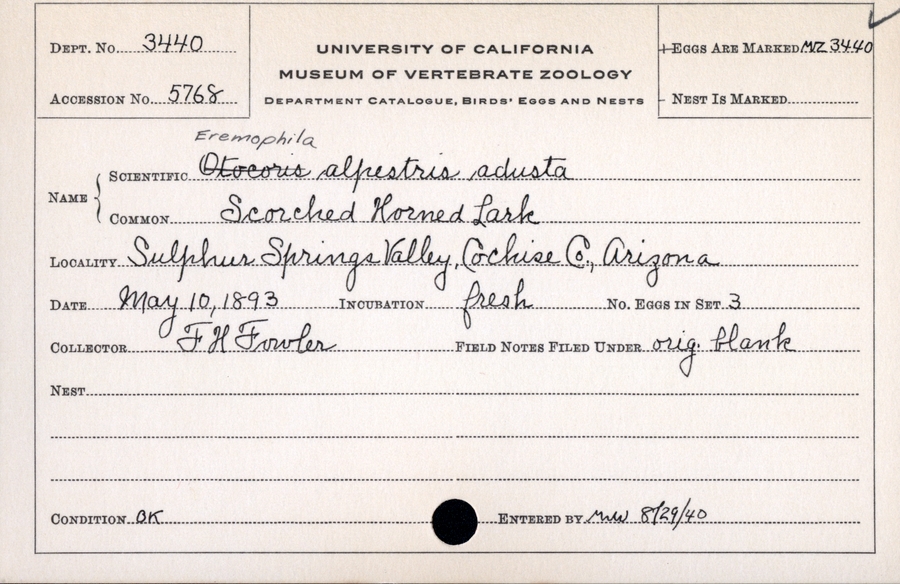 Dept. No. 3440
Accession No. 5768
UNIVERSITY OF CALIFORNIA
MUSEUM OF VERTEBRATE ZOOLOGY
Department Catalogue, Birds' Eggs and Nests
Eggs Are Marked MVZ 3440
Nest Is Marked
Eremophila
Name Scientific Otocoris alpestris adusta
Common Scorched Horned Lark
Locality Sulphur Springs Valley, Cochise Co., Arizona
Date May 10, 1893 Incubation fresh No. Eggs in Set 3
Collector F H Fowler Field Notes Filed Under orig. blank
Nest
Condition OK Entered by MW 8/29/40